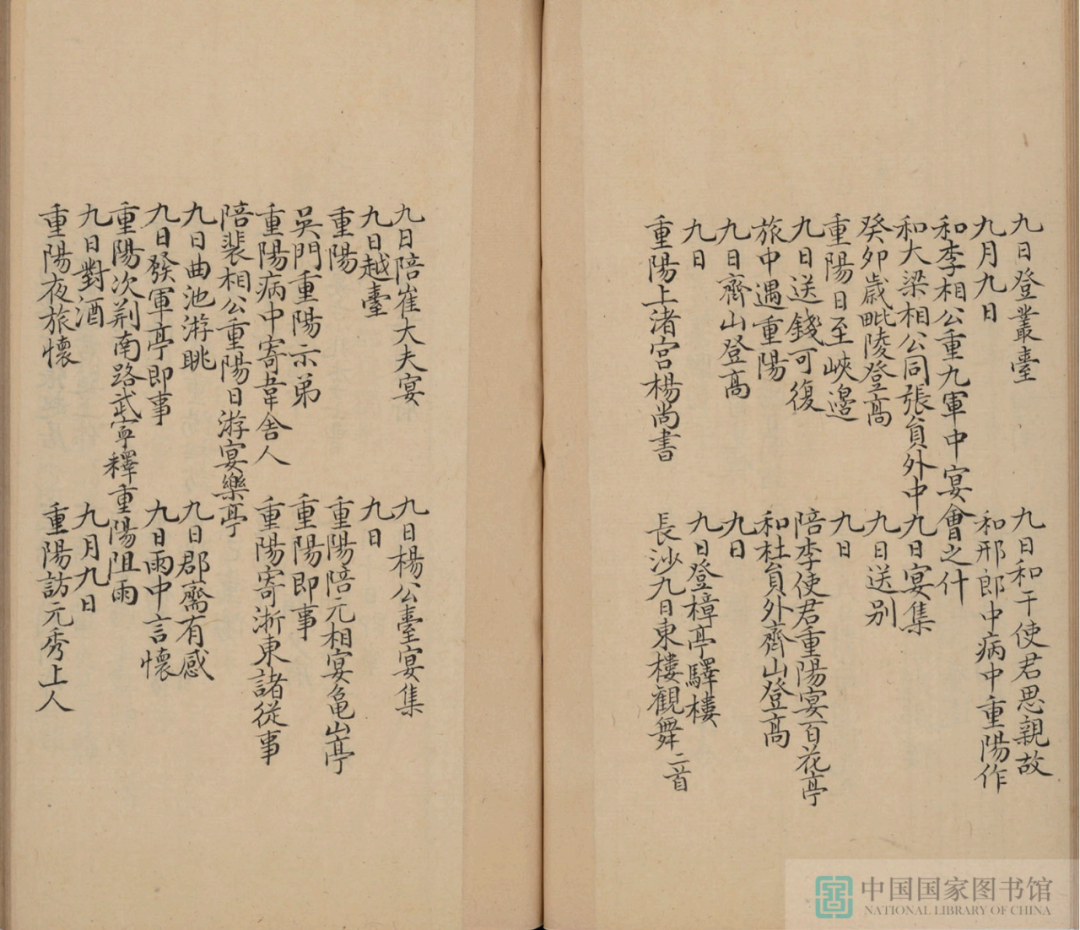 九日登叢臺
九日和于使君思親故
九月九日
和邢郎中病中重陽作
和李相公重九軍中宴會之什
和大梁相公同張員外中
九日宴集
癸卯歲毗陵登高
九日送别
重陽日至峽邊
九日
九日送錢可復
陪李使君重陽宴百花亭
旅中遇重陽
和杜員外齊山登高
九日齊山登高
九日
九日
九日登樟亭驛樓
重陽上渚宮楊尚書
長沙九日東樓観舞二首
九日陪崔大夫宴
九日楊公臺宴集
九日越臺
九日
重陽
重陽陪元相宴龜山亭
吳門重陽示弟
重陽即事
重陽病中寄韋舍人
重陽寄浙東諸從事
陪裴相公重陽日游宴樂亭
九日曲池游眺
九日郡齋有感
九日發軍亭即事
九日雨中言懷
重陽次荆南路武寧釋重陽阻雨
九日對酒
九月九日
重陽夜旅懷
重陽訪元秀上人
中国国家图书馆
NATIONAL LIBRARY OF CHINA